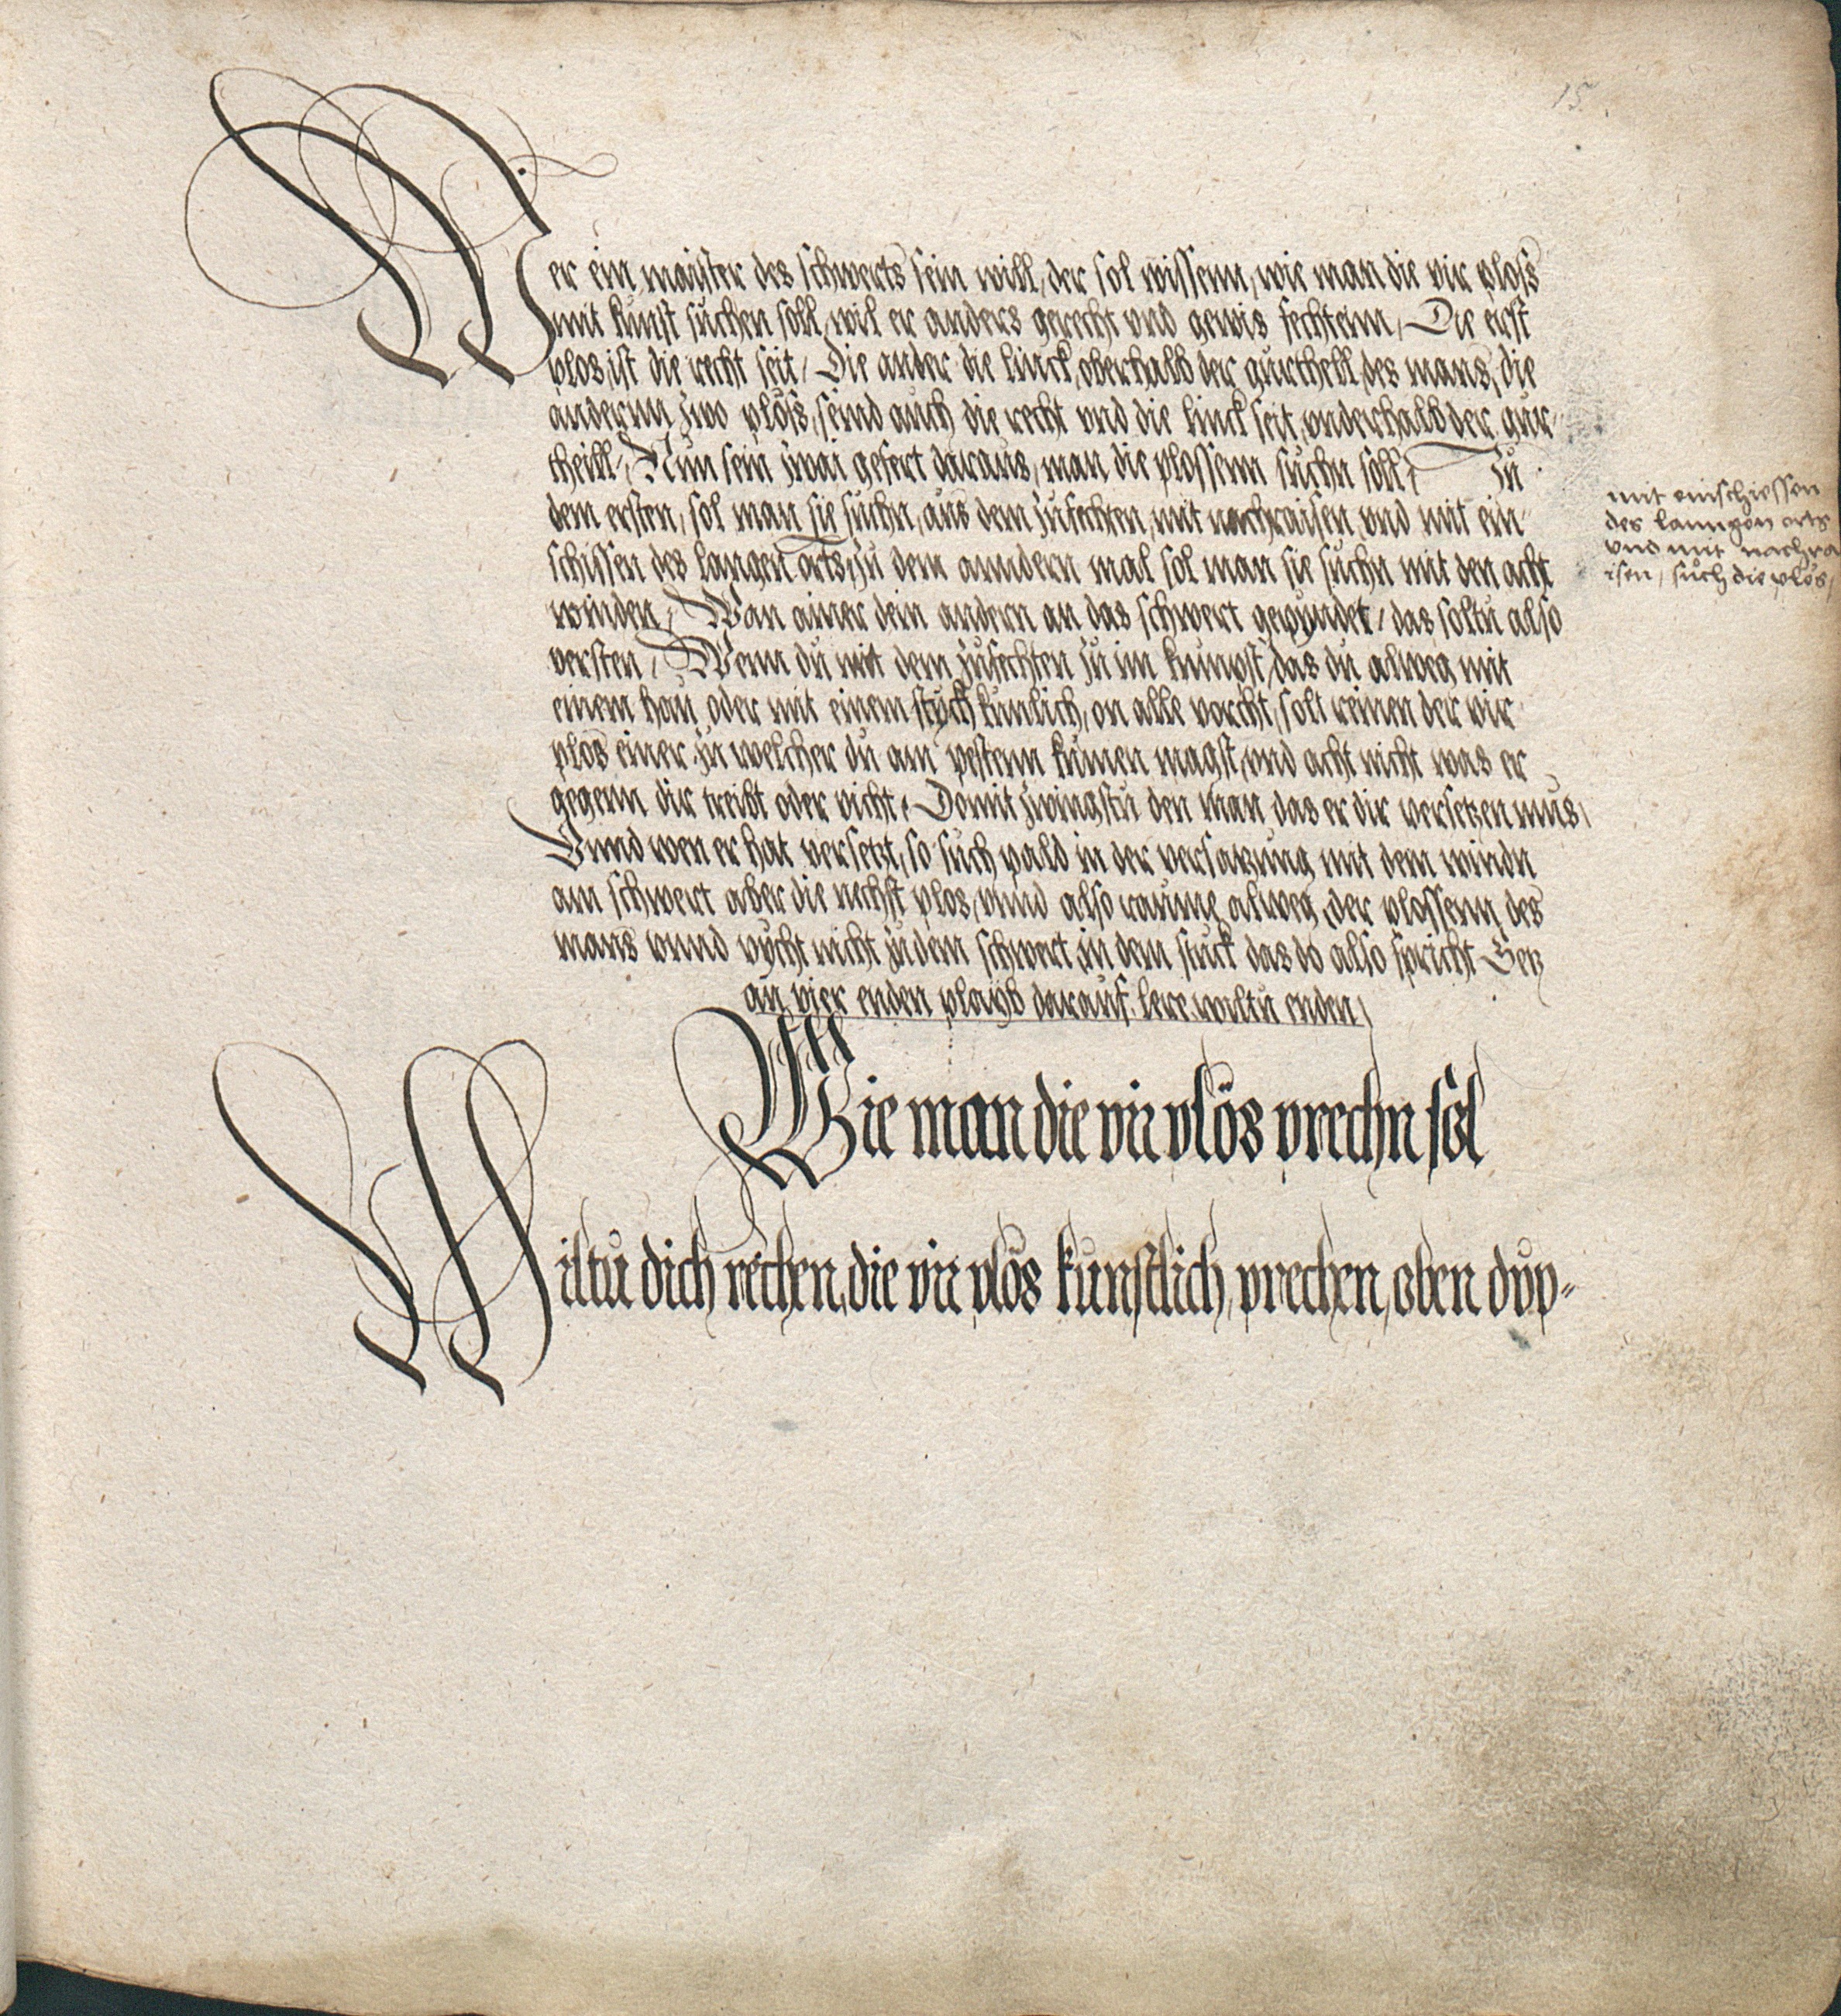 15
Wer ein maister des schwerts sein will, der sol wissenn, wie man die vir ploss
mit kunst suchen soll, wil er anders gerecht vnd gewis fechtenn, Die erst
plos, ist die recht seit, Die ander die linck, oberhalb der gurthell, des mans, die
andernn zwo plöss, seind auch die recht vnd die linck seit, vnderhalb der gur-
theill, Nun sein zwai gefert daraus, man die plossenn suchn soll, Zu
dem ersten, sol man sie suchn, aus dem zufechten, mit nachraisen, vnd mit ein-
schissen des langen orts, zu dem anndern mal sol man sie suchn mit den acht
winden, Wan ainer dem andern an das schwert gepundet, das soltu also
versten, Wenn du mit dem zufechten zu im kumpst, das du alweg mit
einem hau, oder mit einem stuck kunlich, on alle vorcht, solt reimen der vir
plos einer, zu welcher du am pestenn kumen magst, vnd acht nicht was er
gegenn dir treibt oder vicht, Domit zwingstu den man das er dir versetzen mus,
Vnnd wen er hat versetzt, so such pald in der versatzung mit dem windn
am schwert aber die nechst plos, vnnd also raume alweg, der plossenn, des
mans vnnd vycht nicht zu dem schwert, in dem stuck das do also spricht Setz
an vier enden playb darauf, lere, wiltu enden,
mit einschiessen
des lanngen orts
vnd mit nachra
isen, such die plös,
Wie man die vir plös prechn sol
Wiltu dich rechen, die vir plös kunstlich, prechen, oben dup-